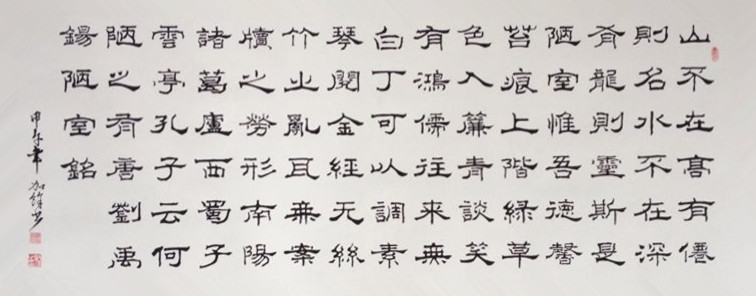 山不在高有僊
則名水不在深
有龍則靈斯是
陋室惟吾德馨
苔痕上階緑草
色入簾青談笑
有鴻儒往來無
白丁可以調素
琴閱金經无絲
竹之亂耳無案
牘之勞形南陽
諸葛廬西蜀子
雲亭孔子云何
陋之有唐劉禹
錫陋室銘